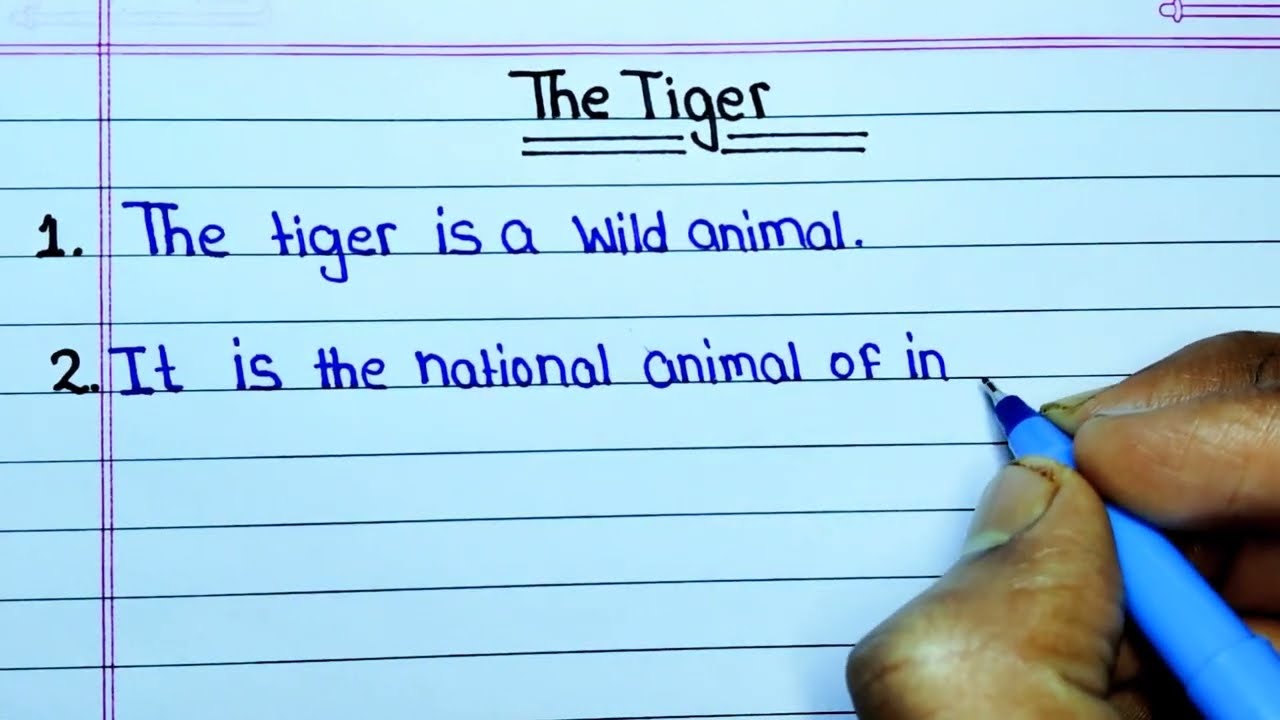 The Tiger
1. The tiger is a wild animal.
2. It is the national animal of in